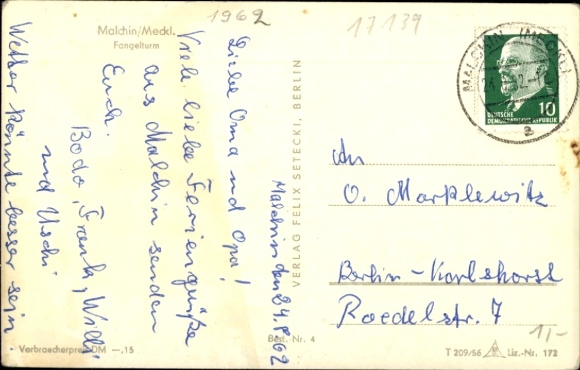 1962
17139
Malchin/Meckl.
Fangelturm
Malchin den 24.8.62
Liebe Oma und Opa!
Viele liebe Feriengrüße
aus Malchin senden
Euch
Bodo, Frank, Willi
und Uschi
Wetter könnte besser sein
VERLAG FELIX SETECKI, BERLIN
MALCHIN
10
DEUTSCHE
DEMOKRATISCHE REPUBLIK
a
An
O. Marklewitz
Berlin-Karlshorst
Roedelstr. 7
1,-
Verbraucherpreis DM —,15
Best. Nr. 4
T 209/56 Liz.-Nr. 172